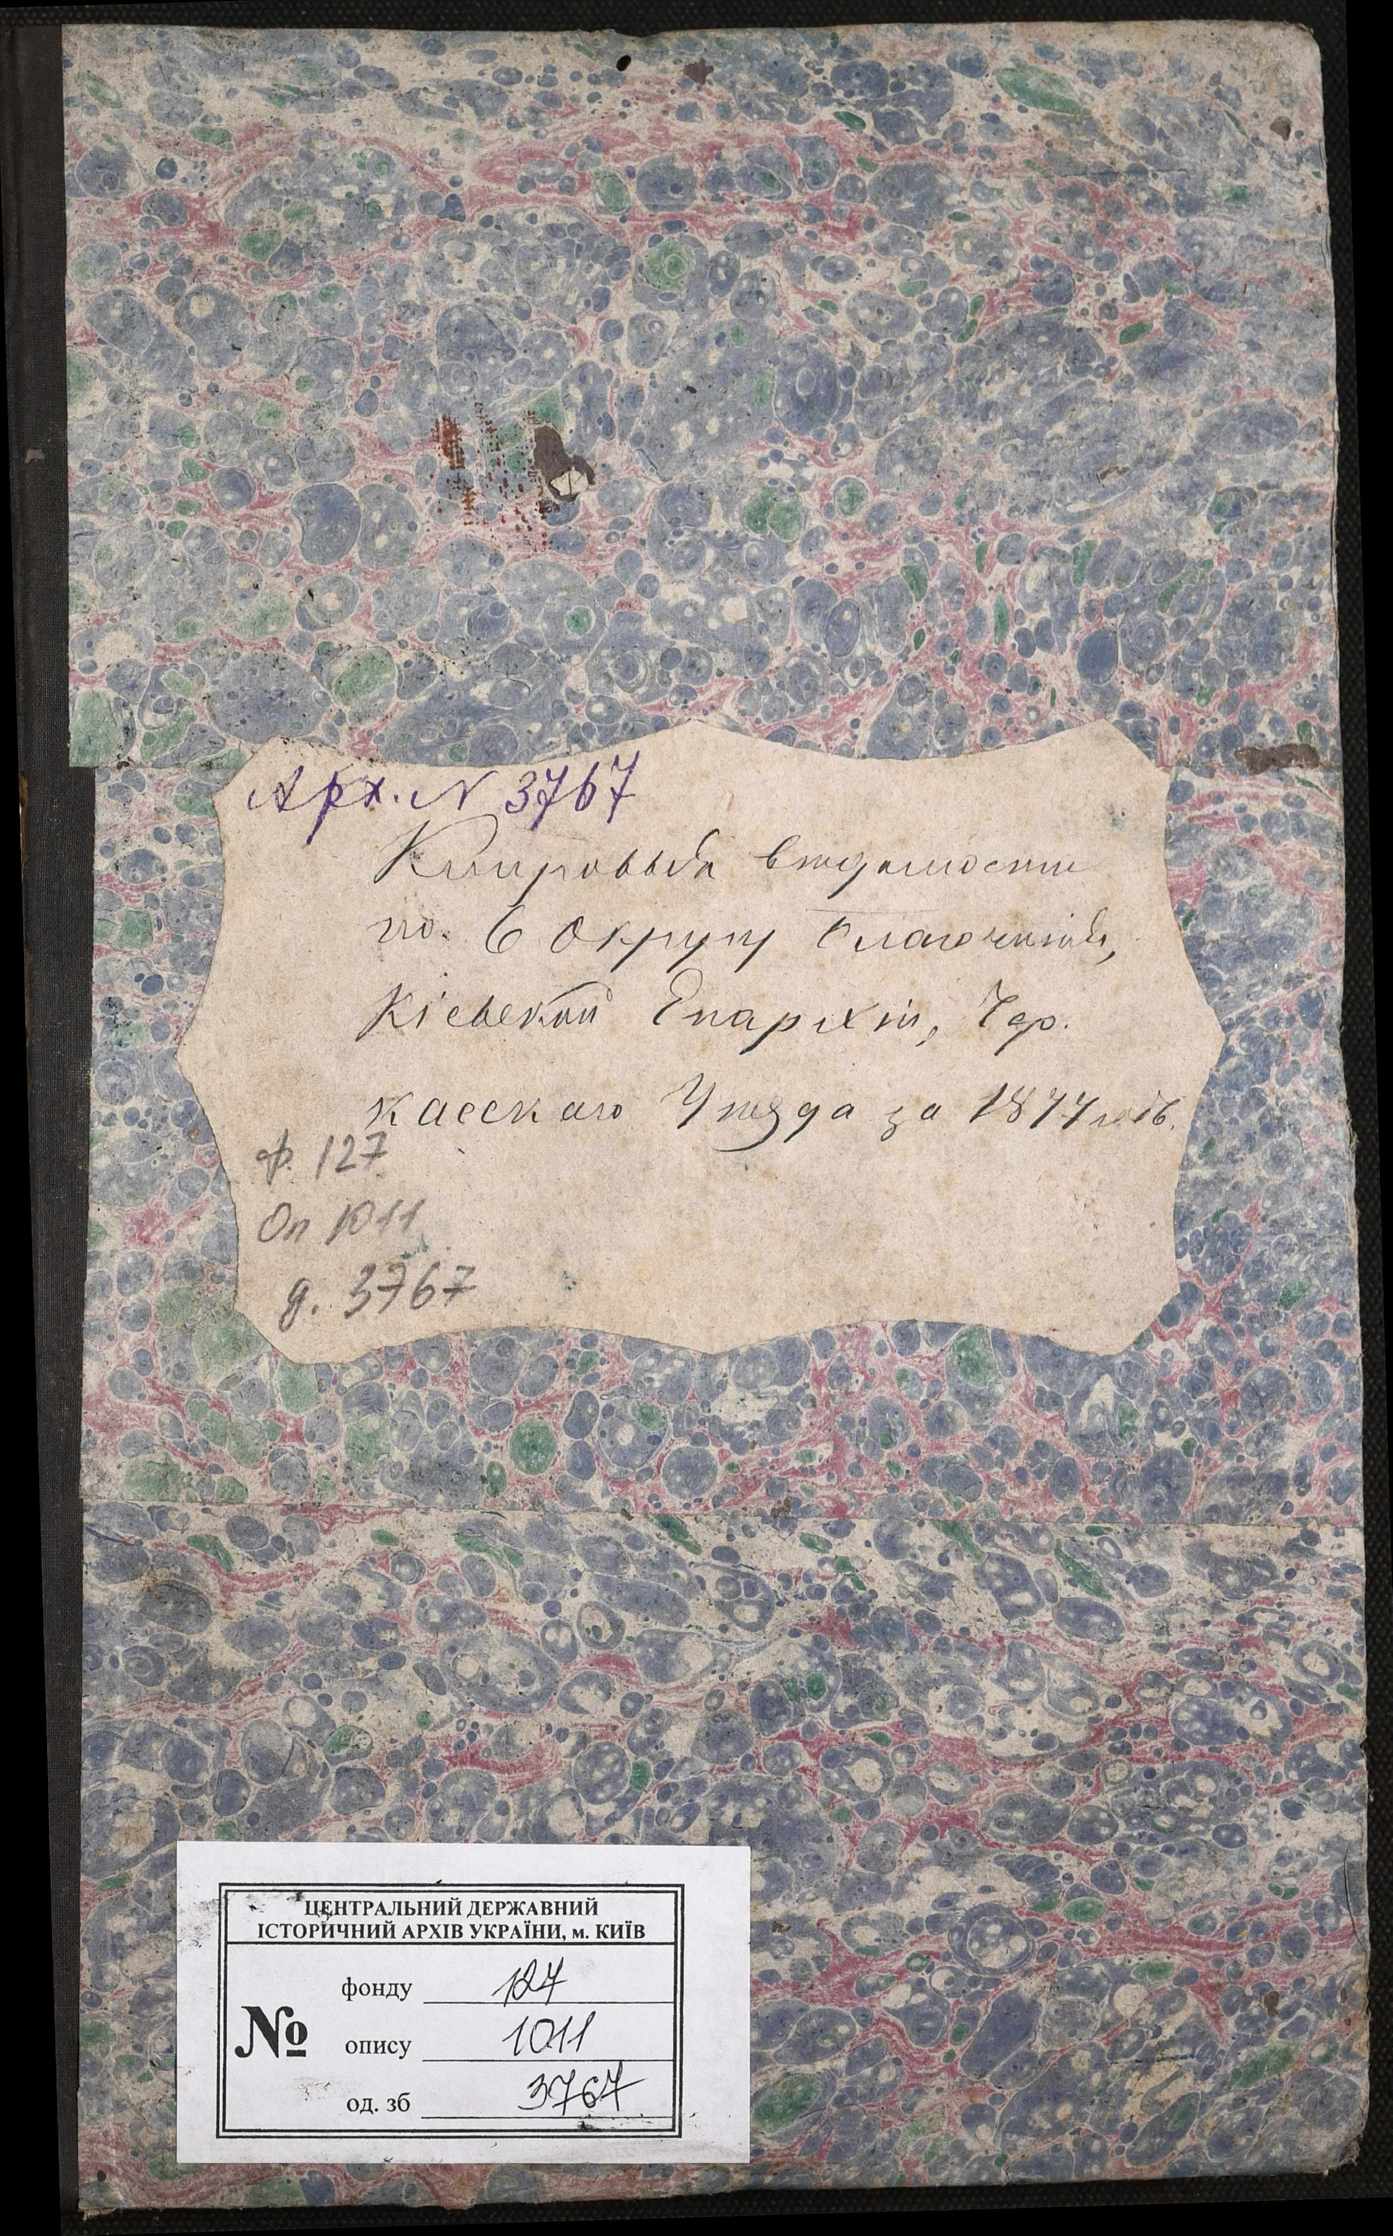 Арх. N 3767
Клировыя вѣдомости
по 6 округу благочинія,
Кіевской Епархіи, Чер.
касскаго Уѣзда за 1877 годъ.
ф. 127
Оп 1011
д. 3767
ЦЕНТРАЛЬНИЙ ДЕРЖАВНИЙ
ІСТОРИЧНИЙ АРХІВ УКРАЇНИ, м. КИЇВ
№
фонду 127
опису 1011
од. зб 3767